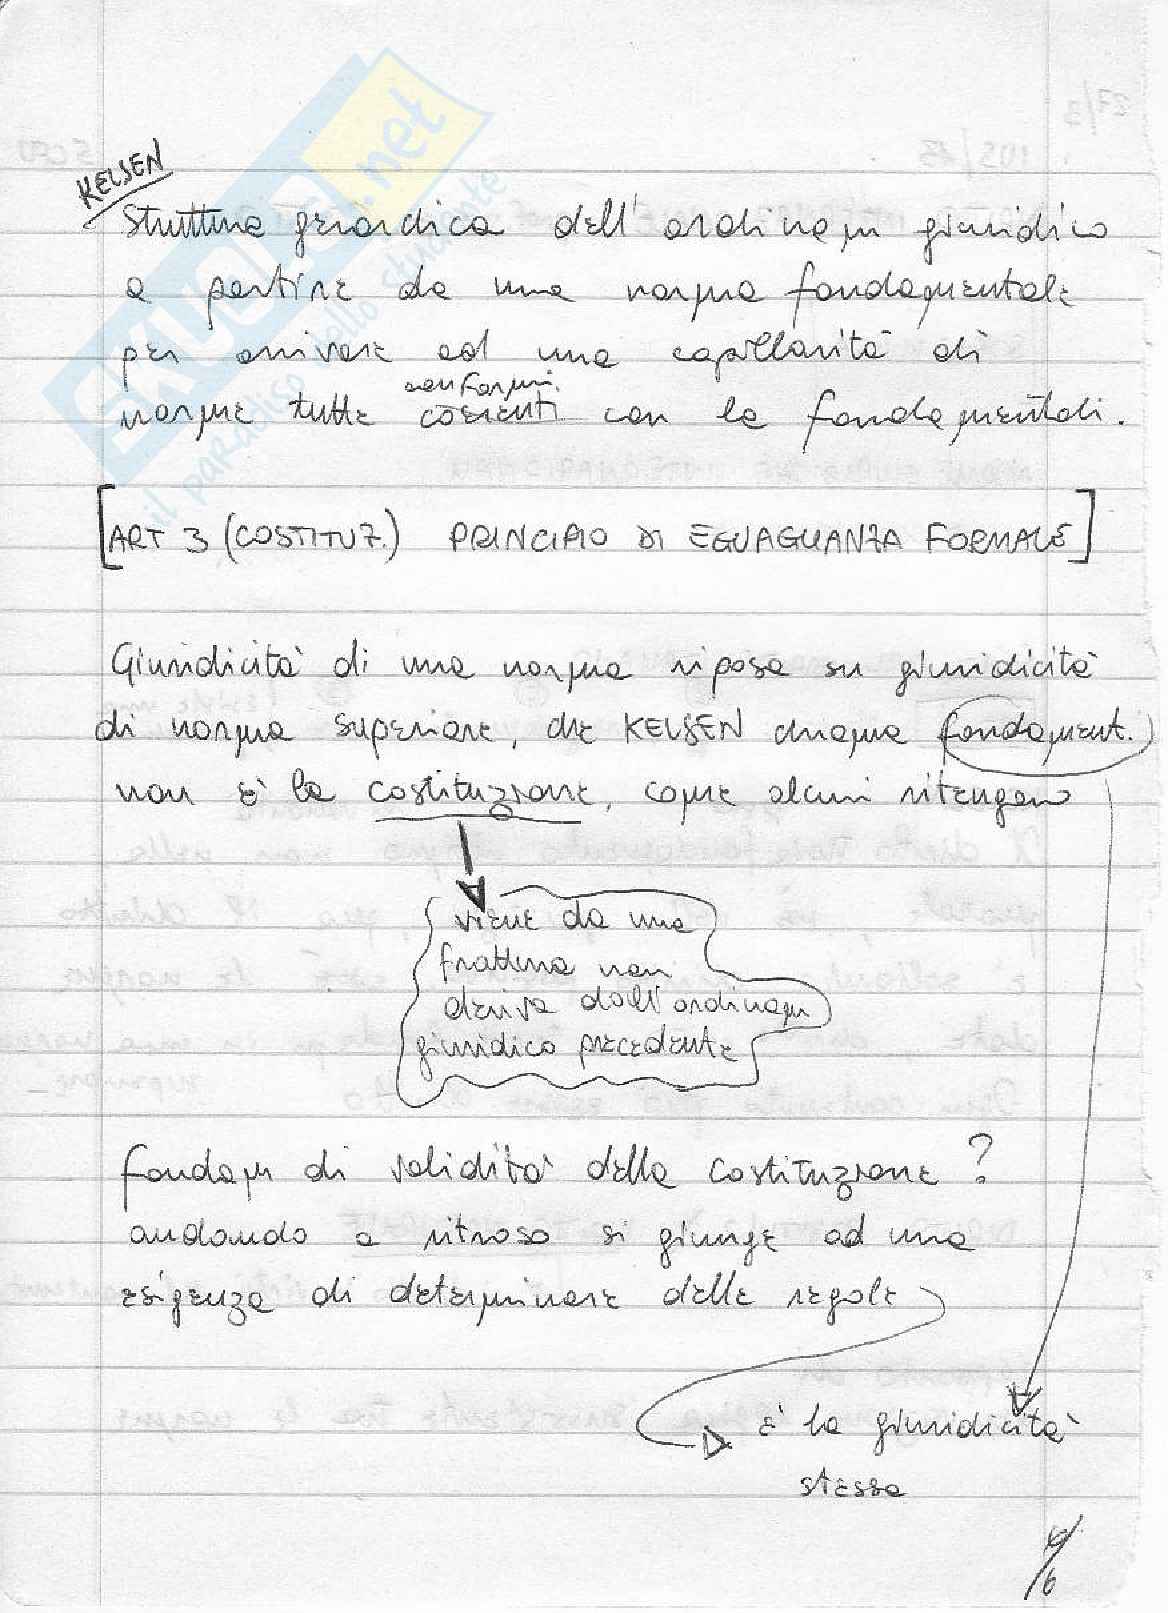 KELSEN
Struttura gerardica dell'ordinam giuridico
a partire da una norma fondamentale
per arrivare ad una capillarità di
conformi.
norme tutte coerenti con la fondamentali.
[ART 3 (COSTITUZ.) PRINCIPIO DI EGUAGLIANZA FORMALE]
Giuridicità di una norma riposa su giuridicità
di norma superiore, che KELSEN chiama fondament.
non è la costituzione, come alcuni ritengono
viene da una
frattura non
deriva dall'ordinam
giuridico precedente
fondam di validità della costituzione?
andando a ritroso si giunge ad una
esigenza di determinare delle regole
è la giuridicità
stessa
SKUOLA.net
il paradiso dello studente